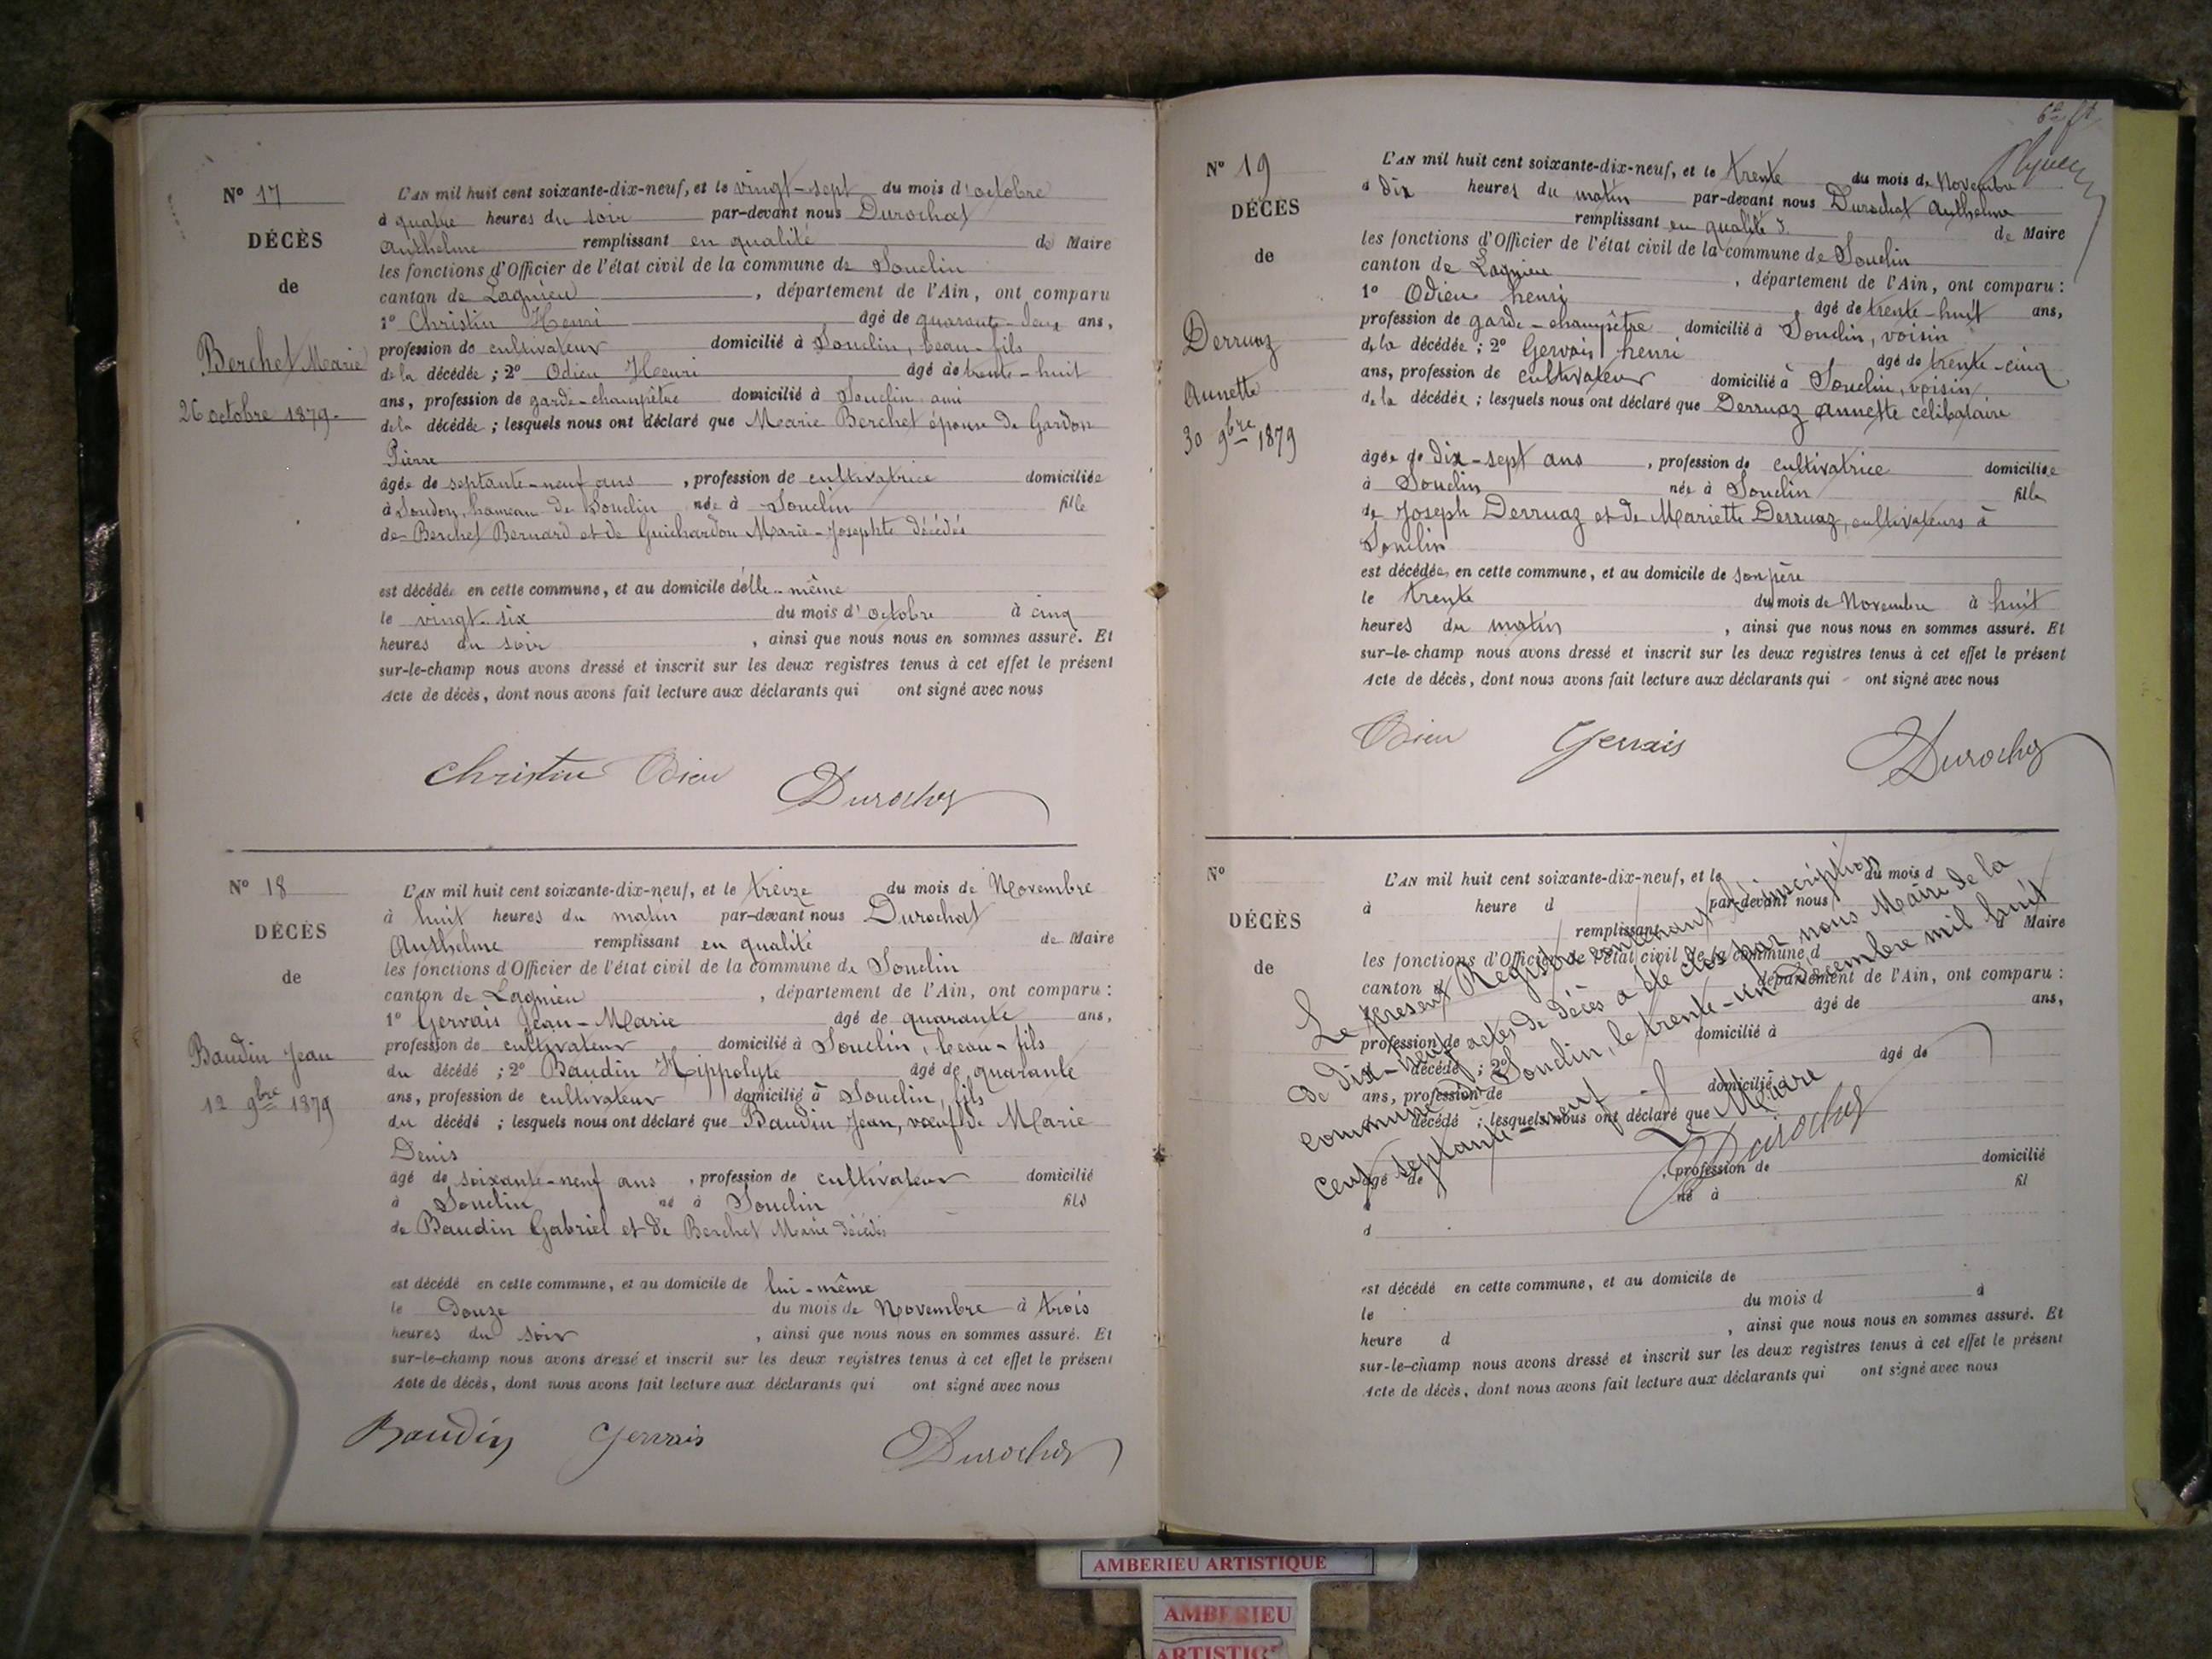 N° 17
DÉCÈS
de
Berchet Marie
26 octobre 1879.
L'AN mil huit cent soixante-dix-neuf, et le vingt-sept du mois d'octobre
à quatre heures du soir par-devant nous Durochat
Anthelme remplissant en qualité de Maire
les fonctions d'Officier de l'état civil de la commune de Souclin
canton de Lagnieu, département de l'Ain, ont comparu
1° Christin Henri âgé de quarante-deux ans,
profession de cultivateur domicilié à Souclin, beau-fils
de la décédée ; 2° Odieu Henri âgé de trente-huit
ans, profession de garde-champêtre domicilié à Souclin ami
de la décédée ; lesquels nous ont déclaré que Marie Berchet épouse de Gardon
Pierre
âgée de septante-neuf ans, profession de cultivatrice domiciliée
à Soudon, hameau de Souclin, née à Souclin fille
de Berchet Bernard et de Guichardon Marie-Josephte décédés
est décédée en cette commune, et au domicile d'elle-même
le vingt-six du mois d'octobre à cinq
heures du soir, ainsi que nous nous en sommes assuré. Et
sur-le-champ nous avons dressé et inscrit sur les deux registres tenus à cet effet le présent
Acte de décès, dont nous avons fait lecture aux déclarants qui ont signé avec nous
Christin Odieu Durochat
N° 18
DÉCÈS
de
Baudin Jean
12 9bre 1879
L'AN mil huit cent soixante-dix-neuf, et le treize du mois de Novembre
à huit heures du matin par-devant nous Durochat
Anthelme remplissant en qualité de Maire
les fonctions d'Officier de l'état civil de la commune de Souclin
canton de Lagnieu, département de l'Ain, ont comparu :
1° Gervais Jean-Marie âgé de quarante ans,
profession de cultivateur domicilié à Souclin, beau-fils
du décédé ; 2° Baudin Hippolyte âgé de quarante
ans, profession de cultivateur domicilié à Souclin, fils
du décédé ; lesquels nous ont déclaré que Baudin Jean, vœuf de Marie
Denis
âgé de soixante-neuf ans, profession de cultivateur domicilié
à Souclin né à Souclin fils
de Baudin Gabriel et de Berchet Marie décédés
est décédé en cette commune, et au domicile de lui-même
le Douze du mois de Novembre à trois
heures du soir, ainsi que nous nous en sommes assuré. Et
sur-le-champ nous avons dressé et inscrit sur les deux registres tenus à cet effet le présent
Acte de décès, dont nous avons fait lecture aux déclarants qui ont signé avec nous
Baudin Gervais Durochat
N° 19
DÉCÈS
de
Derruaz
Annette
30 9bre 1879
L'AN mil huit cent soixante-dix-neuf, et le trente du mois de Novembre
à dix heures du matin par-devant nous Durochat Anthelme
remplissant en qualité de Maire
les fonctions d'Officier de l'état civil de la commune de Souclin
canton de Lagnieu, département de l'Ain, ont comparu :
1° Odieu henri âgé de trente-huit ans,
profession de garde-champêtre domicilié à Souclin, voisin
de la décédée ; 2° Gervais henri âgé de trente-cinq
ans, profession de cultivateur domicilié à Souclin, voisin
de la décédée ; lesquels nous ont déclaré que Derruaz annette célibataire
âgée de dix-sept ans, profession de cultivatrice domiciliée
à Souclin née à Souclin fille
de Joseph Derruaz et de Mariette Derruaz, cultivateurs à
Souclin
est décédée en cette commune, et au domicile de son père
le trente du mois de Novembre à huit
heures du matin, ainsi que nous nous en sommes assuré. Et
sur-le-champ nous avons dressé et inscrit sur les deux registres tenus à cet effet le présent
Acte de décès, dont nous avons fait lecture aux déclarants qui ont signé avec nous
Odieu Gervais Durochat
N°
DÉCÈS
de
L'AN mil huit cent soixante-dix-neuf, et le du mois d
à heure d par-devant nous
remplissant d Maire
les fonctions d'Officier de l'état civil de la commune d
canton d département de l'Ain, ont comparu :
âgé de ans,
profession de domicilié à
décédé ; 2° âgé de
ans, profession de domicilié à
décédé ; lesquels nous ont déclaré que
âgé de profession de domicilié
à né à fil
d
est décédé en cette commune, et au domicile de
le du mois d à
heure d, ainsi que nous nous en sommes assuré. Et
sur-le-champ nous avons dressé et inscrit sur les deux registres tenus à cet effet le présent
Acte de décès, dont nous avons fait lecture aux déclarants qui ont signé avec nous
Le présent Registre contenant l'inscription
de dix-neuf actes de décès a été clos par nous Maire de la
commune de Souclin, le trente-un décembre mil huit
cent septante-neuf
Le Maire
Durochat
AMBERIEU ARTISTIQUE
AMBERIEU
ARTISTIQ